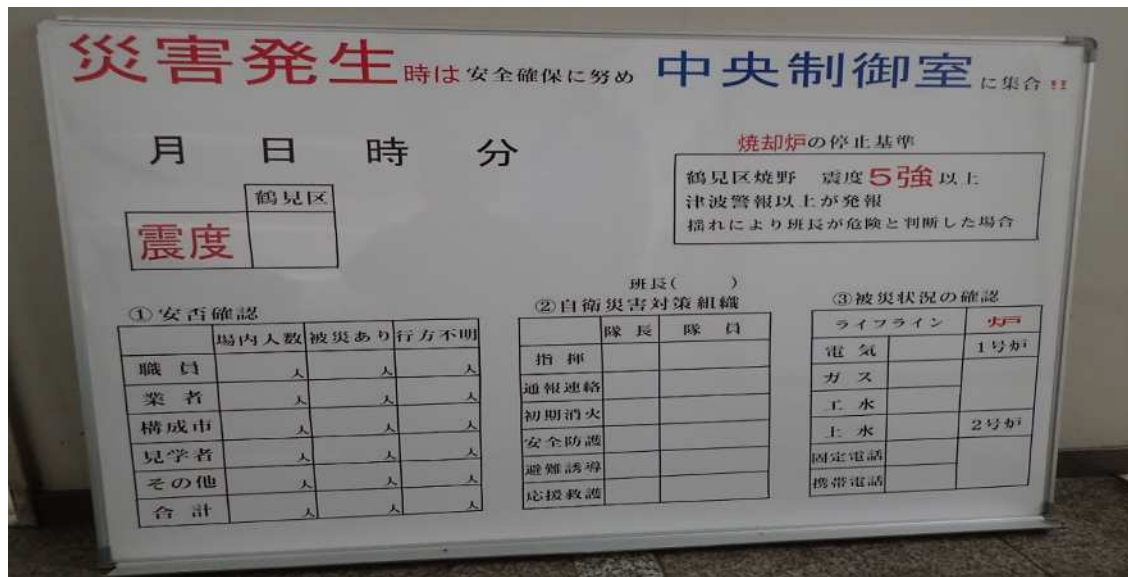 災害発生時は安全確保に努め 中央制御室に集合!!
月 日 時 分
鶴見区
震度
焼却炉の停止基準
鶴見区焼野 震度5強以上
津波警報以上が発報
揺れにより班長が危険と判断した場合
①安否確認
場内人数 被災あり 行方不明
職員 人 人 人
業者 人 人 人
構成市 人 人 人
見学者 人 人 人
その他 人 人 人
合計 人 人 人
班長( )
②自衛災害対策組織
隊長 隊員
指揮
通報連絡
初期消火
安全防護
避難誘導
応援救護
③被災状況の確認
ライフライン 炉
電気 1号炉
ガス
工水
上水 2号炉
固定電話
携帯電話